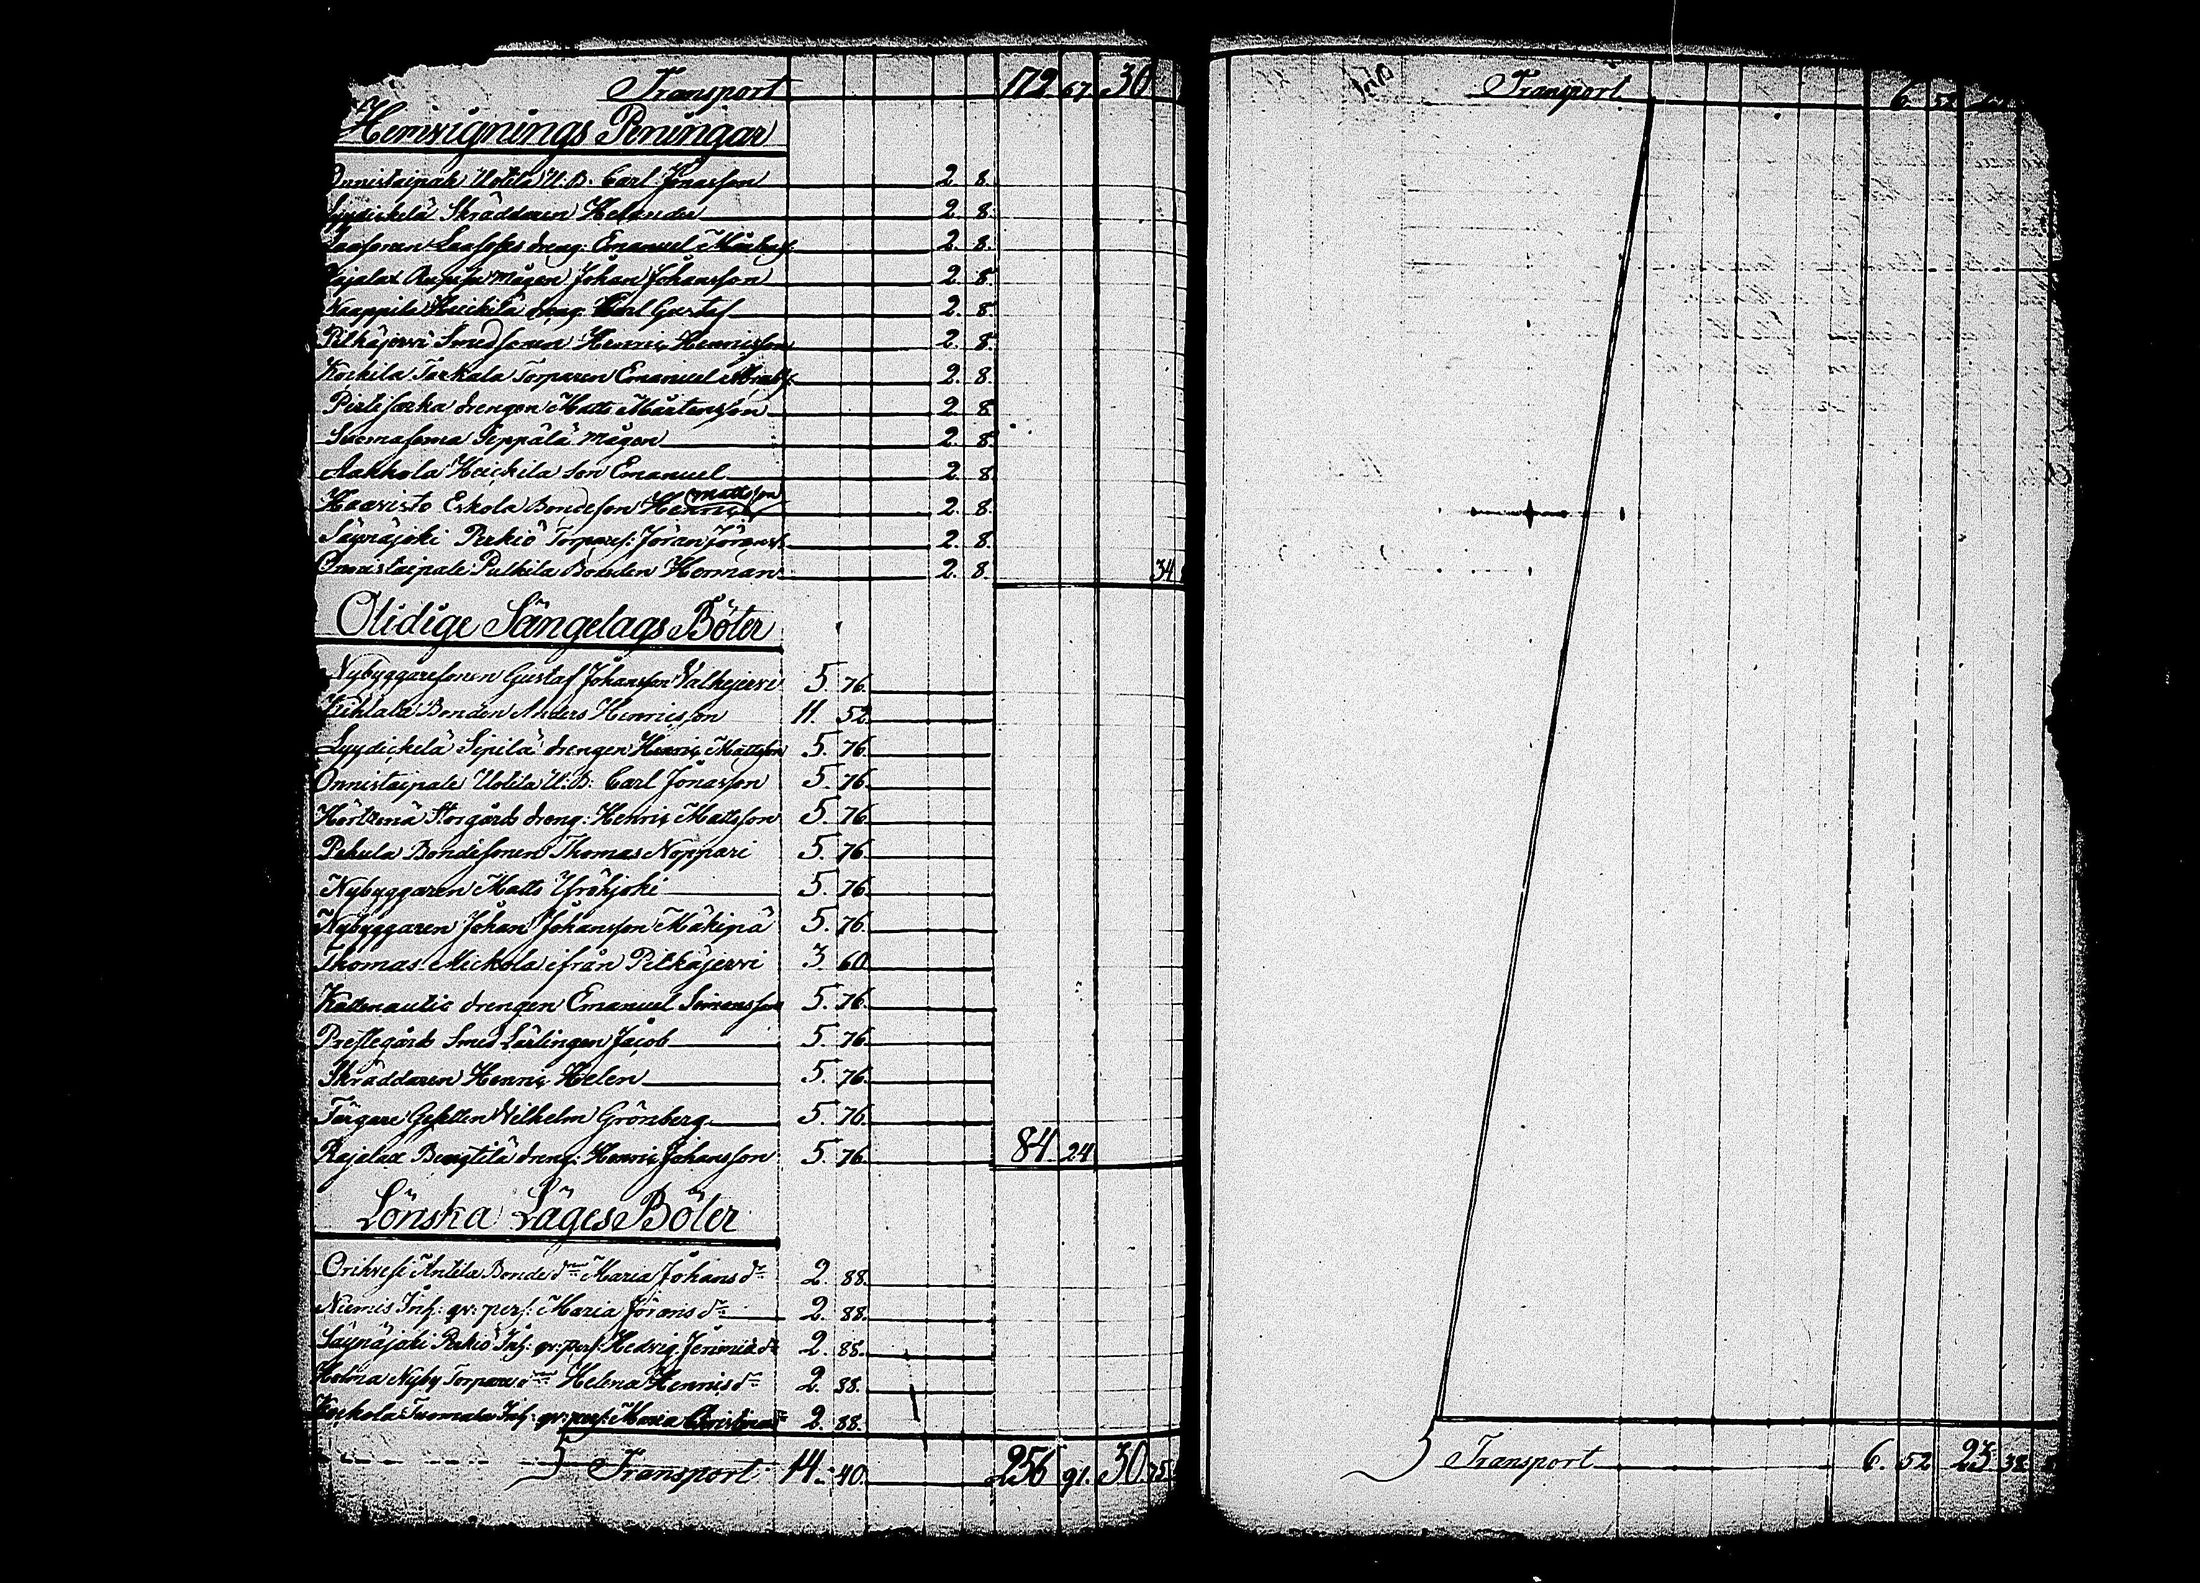 Transport 172 67. 30
Hemvignings Peningar
Onnistaipale Uotila U. B. Carl Jonasson 2. 8.
Lyydickelä Skräddaren Helander 2. 8.
dreng: Emanuel 2. 8.
Rajalax Mågen Johan Johansson 2. 8.
Kaappila Heickilä dreng: Carl Gustaf 2. 8.
Pitkäjervi Smedsonen Henric Henricsson 2. 8.
Kockila Torkala Torparen Emanuel 2. 8.
drengen Matts Mårtensson 2. 8.
Suomasema Seppälä Mågen 2. 8.
Aakkola Heickila son Emanuel 2. 8.
Mattsson
Haavisto Eskola Bondeson Henric 2. 8.
Säynäjoki Perkiö Torpares: Jöran Jörans: 2. 8.
Onnistaipale Pulkila Bonden Herman 2. 8. 34
Olidige Sängelags Böter
Nybyggaresonen Gustaf Johansson Valkejervi 5. 76.
Bonden Anders Henricsson 11. 52.
Lyydickelä Sipilä drengen Henric Mattsson 5. 76.
Onnistaipale Uotila U. B. Carl Jonasson 5. 76.
Hörtsmä Storgårds dreng: Henric Mattsson 5. 76.
Pehula Bondesonen Thomas Noppari 5. 76.
Nybyggaren Matts Yröhjoki 5. 76.
Nybyggaren Johan Johansson Mäkipä 5. 76.
Thomas Mickola ifrån Pitkäjervi 3. 60.
Kattenautio drengen Emanuel Simonsson 5. 76.
Prestegårds Smed Lärlingen Jacob 5. 76.
Skräddaren Henric Helen 5. 76.
Färgare Gesellen Vilhelm Grönberg 5. 76.
Rajalax Bengtilä dreng: Henric Johansson 5. 76. 84 24
Lönska Läges Böter
Orihvesi Antila Bonde dr Maria Johansdr 2. 88.
Niemis Inh: qv: pers: Maria Jöransdr 2. 88.
Säynäjoki Perkiö Inh: qv: pers: Hedvig Jeremiædr 2. 88.
Holma Nyby Torpare dr Helena Henricsdr 2. 88.
Kockola Tuomala Inh: qv: pers: Maria Christinas 2. 88.
Transport 14. 40. 256 91. 30 75
Transport 6. 52
Transport 6. 52 23 38